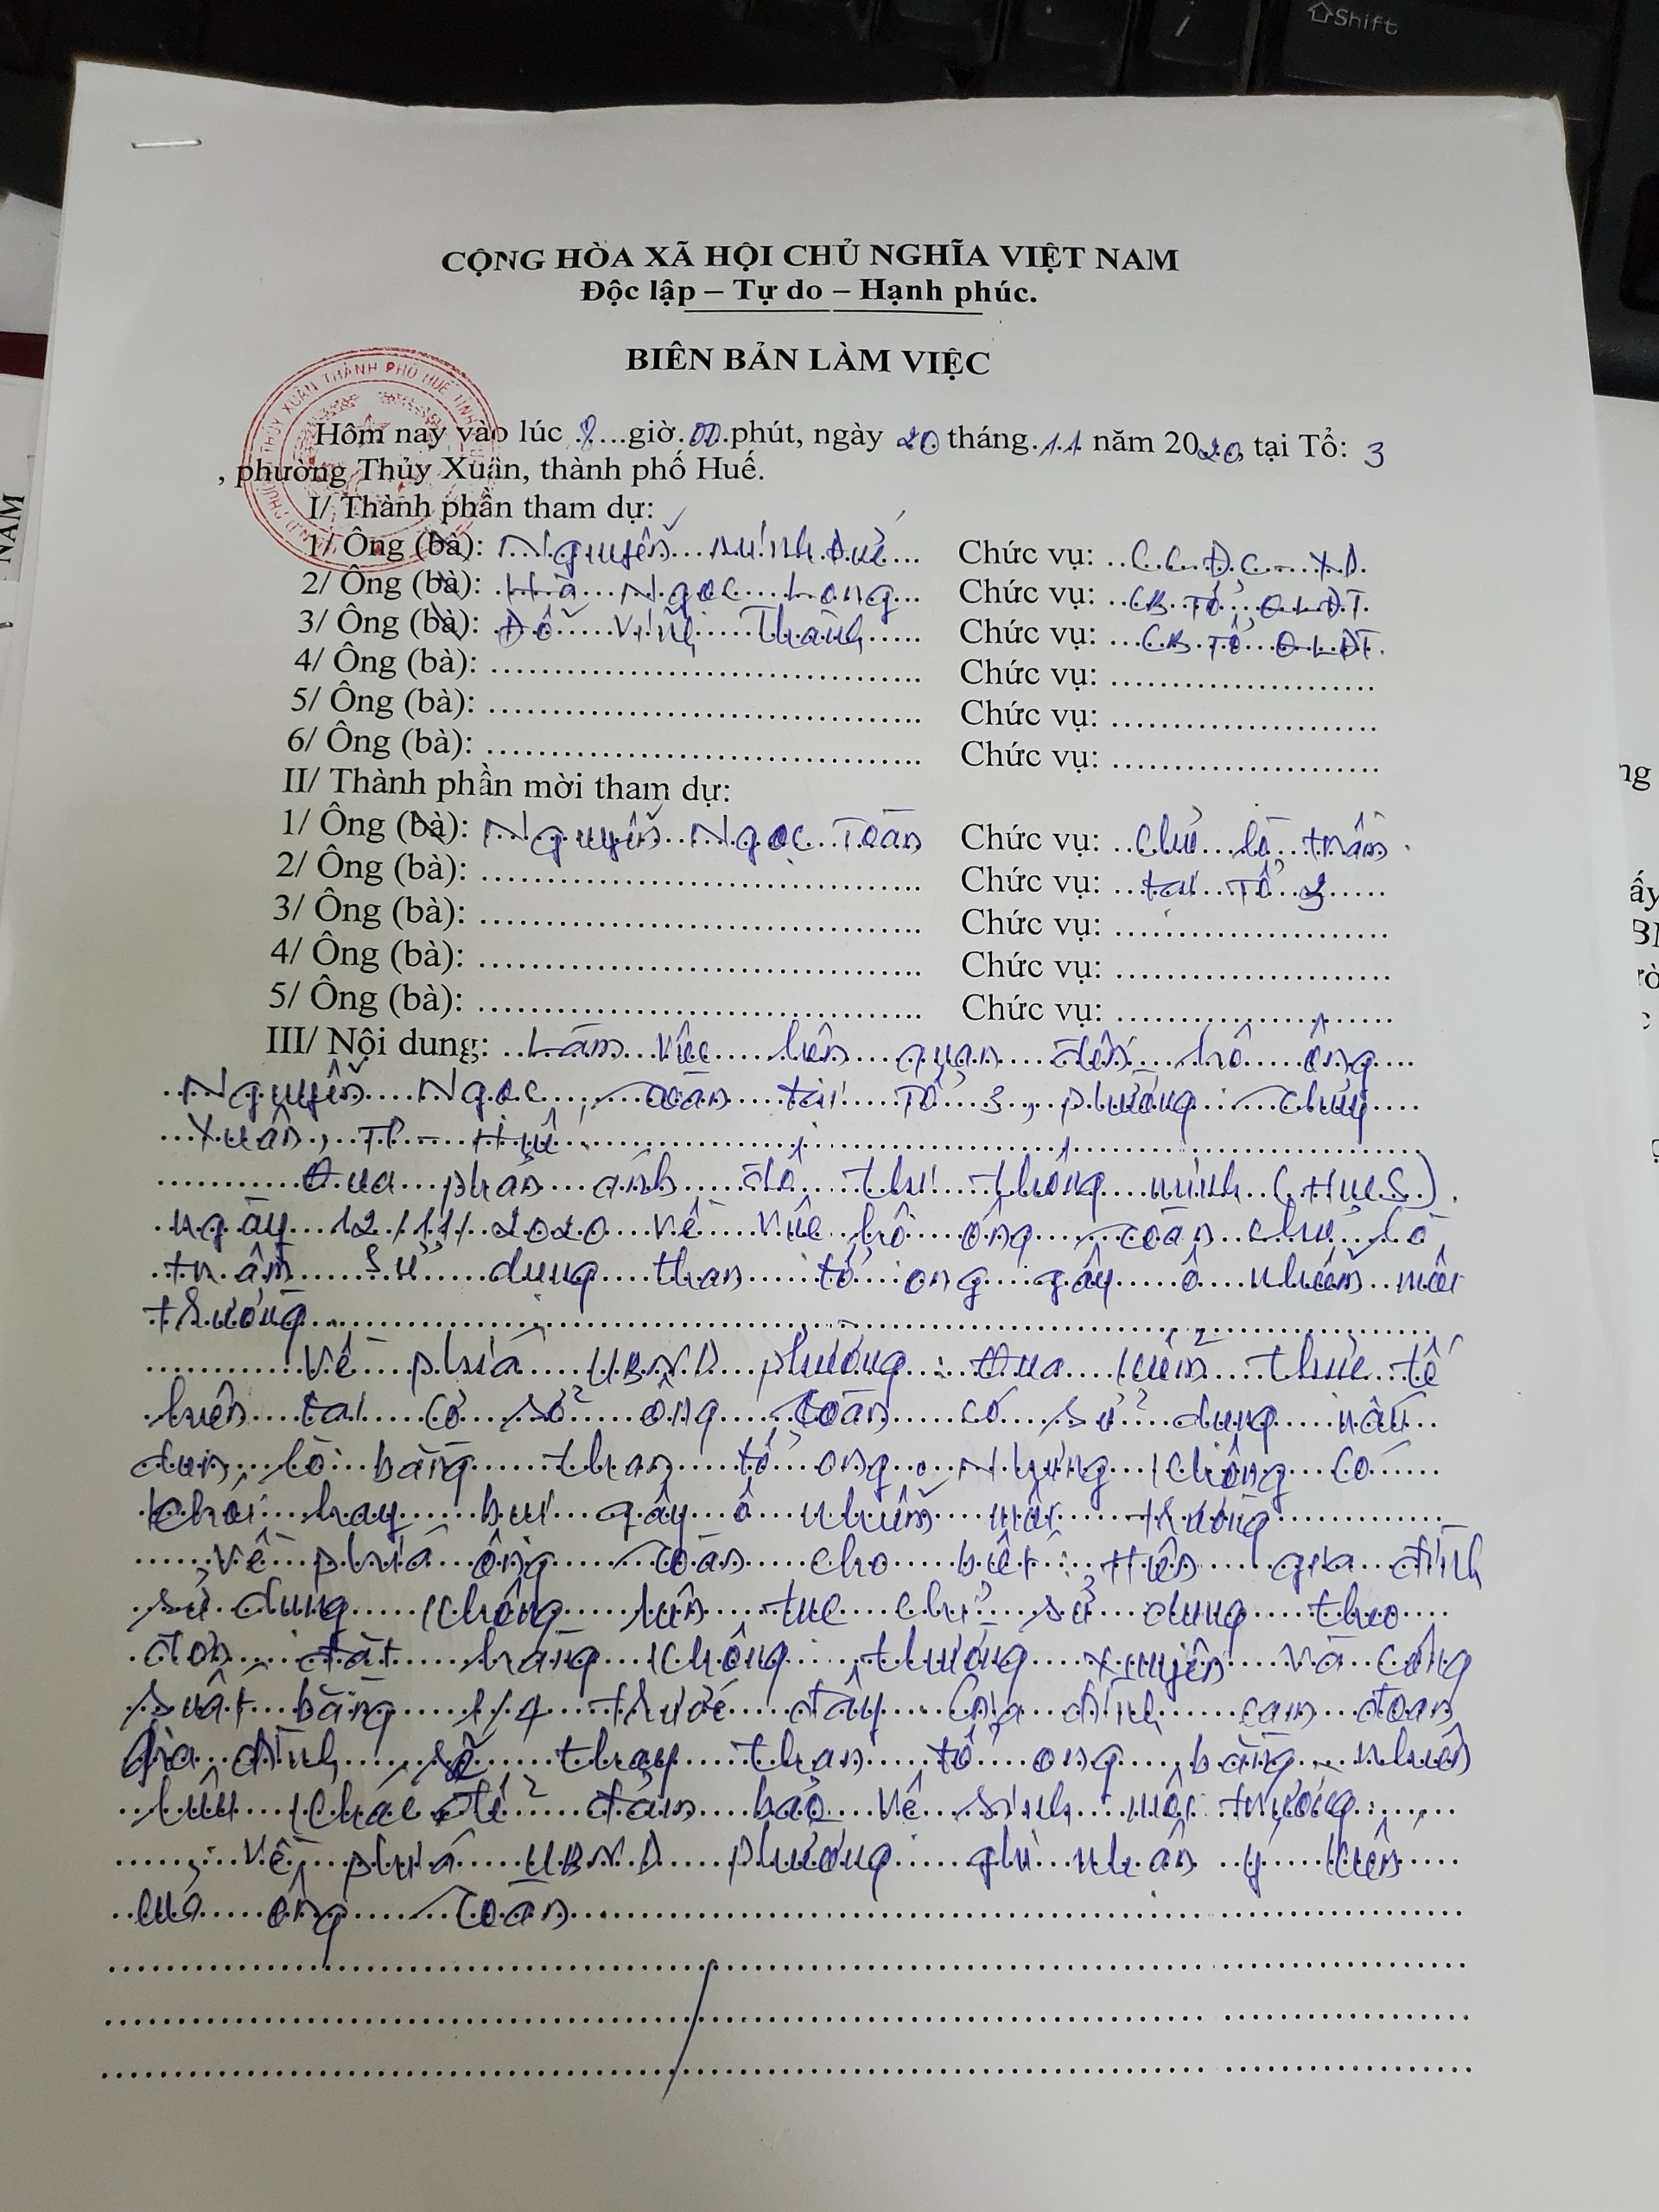 Shift
CỘNG HÒA XÃ HỘI CHỦ NGHĨA VIỆT NAM
Độc lập – Tự do – Hạnh phúc.
BIÊN BẢN LÀM VIỆC
Hôm nay vào lúc 8 giờ 00 phút, ngày 20 tháng 11 năm 2020, tại Tổ: 3
, phường Thủy Xuân, thành phố Huế.
I/ Thành phần tham dự:
1/ Ông (bà): Nguyễn Minh Đức Chức vụ: C.C.Đ.C-XD.
2/ Ông (bà): Hà Ngọc Long Chức vụ: CB Tổ QLĐT.
3/ Ông (bà): Đỗ Vĩnh Thành Chức vụ: CB Tổ QLĐT.
4/ Ông (bà): Chức vụ:
5/ Ông (bà): Chức vụ:
6/ Ông (bà): Chức vụ:
II/ Thành phần mời tham dự:
1/ Ông (bà): Nguyễn Ngọc Toàn Chức vụ: Chủ lò trầm
2/ Ông (bà): Chức vụ: tại Tổ 3
3/ Ông (bà): Chức vụ:
4/ Ông (bà): Chức vụ:
5/ Ông (bà): Chức vụ:
III/ Nội dung: Làm việc liên quan đến hộ ông
Nguyễn Ngọc Toàn tại Tổ 3, phường Thủy
Xuân, TP - Huế
Qua phản ánh đô thị thông minh (HueS)
ngày 12/11/2020 về việc hộ ông Toàn chủ lò
trầm sử dụng than tổ ong gây ô nhiễm môi
trường
Về phía UBND phường: Qua kiểm thực tế
hiện tại cơ sở ông Toàn có sử dụng nấu
đun lò bằng than tổ ong. Nhưng không có
khói hay bụi gây ô nhiễm môi trường
Về phía ông Toàn cho biết: Hiện gia đình
sử dụng không liên tục chỉ sử dụng theo
đơn đặt hàng không thường xuyên và công
suất bằng 1/4 trước đây. Gia đình cam đoan
Gia đình sẽ thay than tổ ong bằng nhiên
liệu khác để đảm bảo vệ sinh môi trường
Về phía UBND phường ghi nhận ý kiến
của ông Toàn